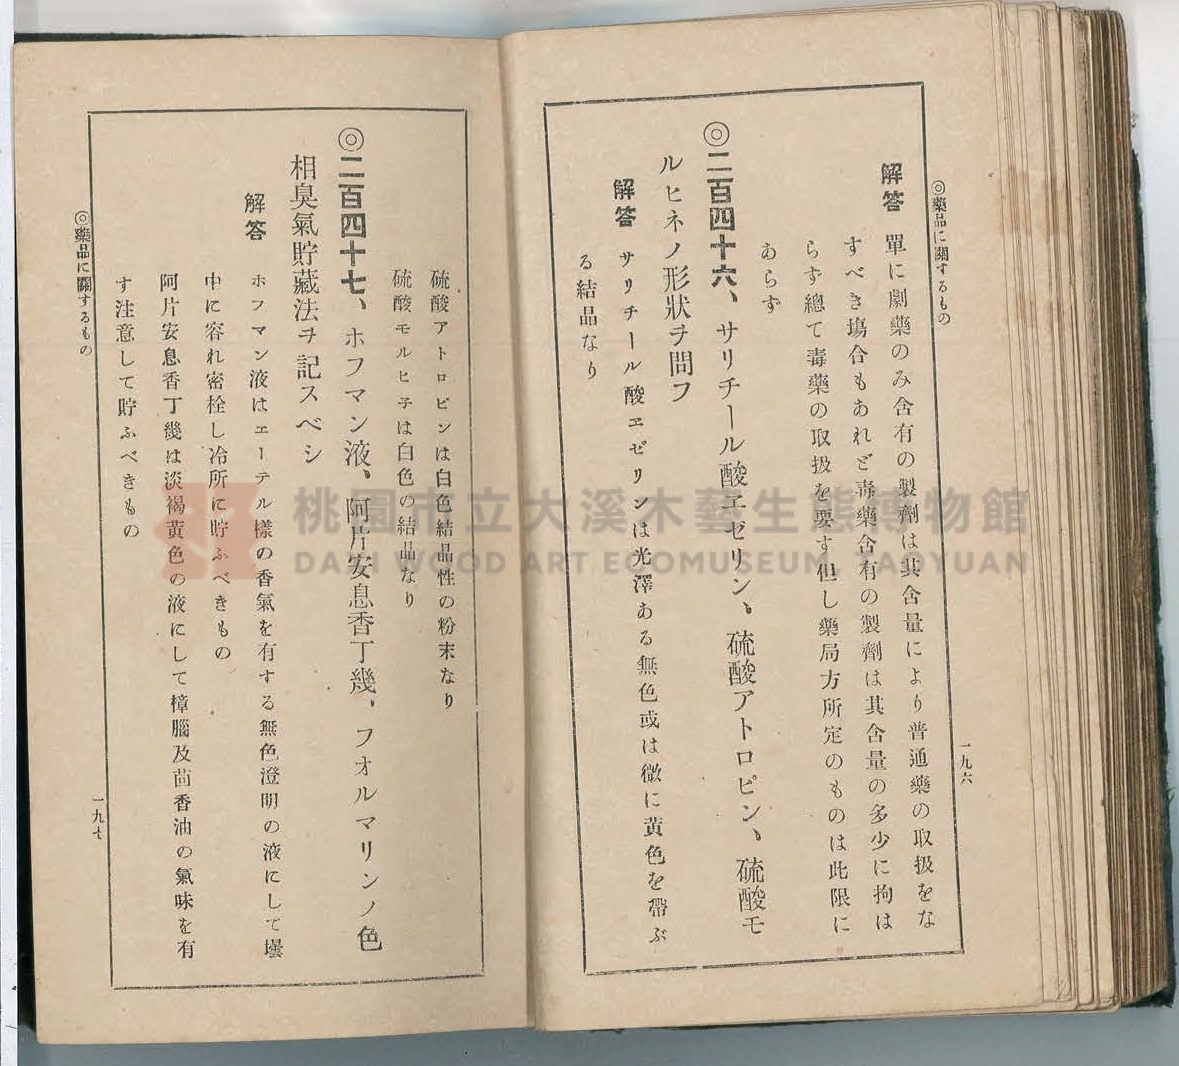 ◎藥品に關するもの
一九六
解答 單に劇藥のみ含有の製劑は其含量により普通藥の取扱をな
すべき塲合もあれど毒藥含有の製劑は其含量の多少に拘は
らず總て毒藥の取扱を要す但し藥局方所定のものは此限に
あらず
◎二百四十六、サリチール酸エゼリン、硫酸アトロピン、硫酸モ
ルヒネノ形狀ヲ問フ
解答 サリチール酸エゼリンは光澤ある無色或は微に黃色を帶ぶ
る結晶なり
硫酸アトロピンは白色結晶性の粉末なり
硫酸モルヒ子は白色の結晶なり
◎二百四十七、ホフマン液、阿片安息香丁幾、フオルマリンノ色
相臭氣貯藏法ヲ記スベシ
解答 ホフマン液はエーテル樣の香氣を有する無色澄明の液にして壜
中に容れ密栓し冷所に貯ふべきもの
阿片安息香丁幾は淡褐黃色の液にして樟腦及茴香油の氣味を有
す注意して貯ふべきもの
◎藥品に關するもの
一九七
桃園市立大溪木藝生態博物館
DAXI WOOD ART ECOMUSEUM, TAOYUAN